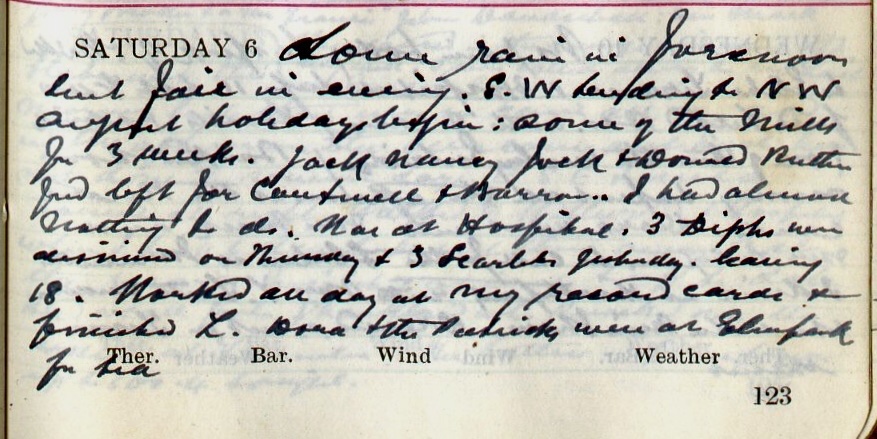 SATURDAY 6 Some rain in forenoon
but fair in evening. S.W tending to N W
August holidays begin: some of the Mills
for 3 weeks. Jack Nancy Jock & Donald Ruther
ford left for & Barrow.. I had almost
nothing to do. Was at Hospital. 3 Diphs were
dismissed on Thursday & 3 Scarlets yesterday. leaving
18. Worked all day at my record cards &
finished L. Dora & the Patricks were at Elmpark
for tea
Ther. Bar. Wind Weather
123